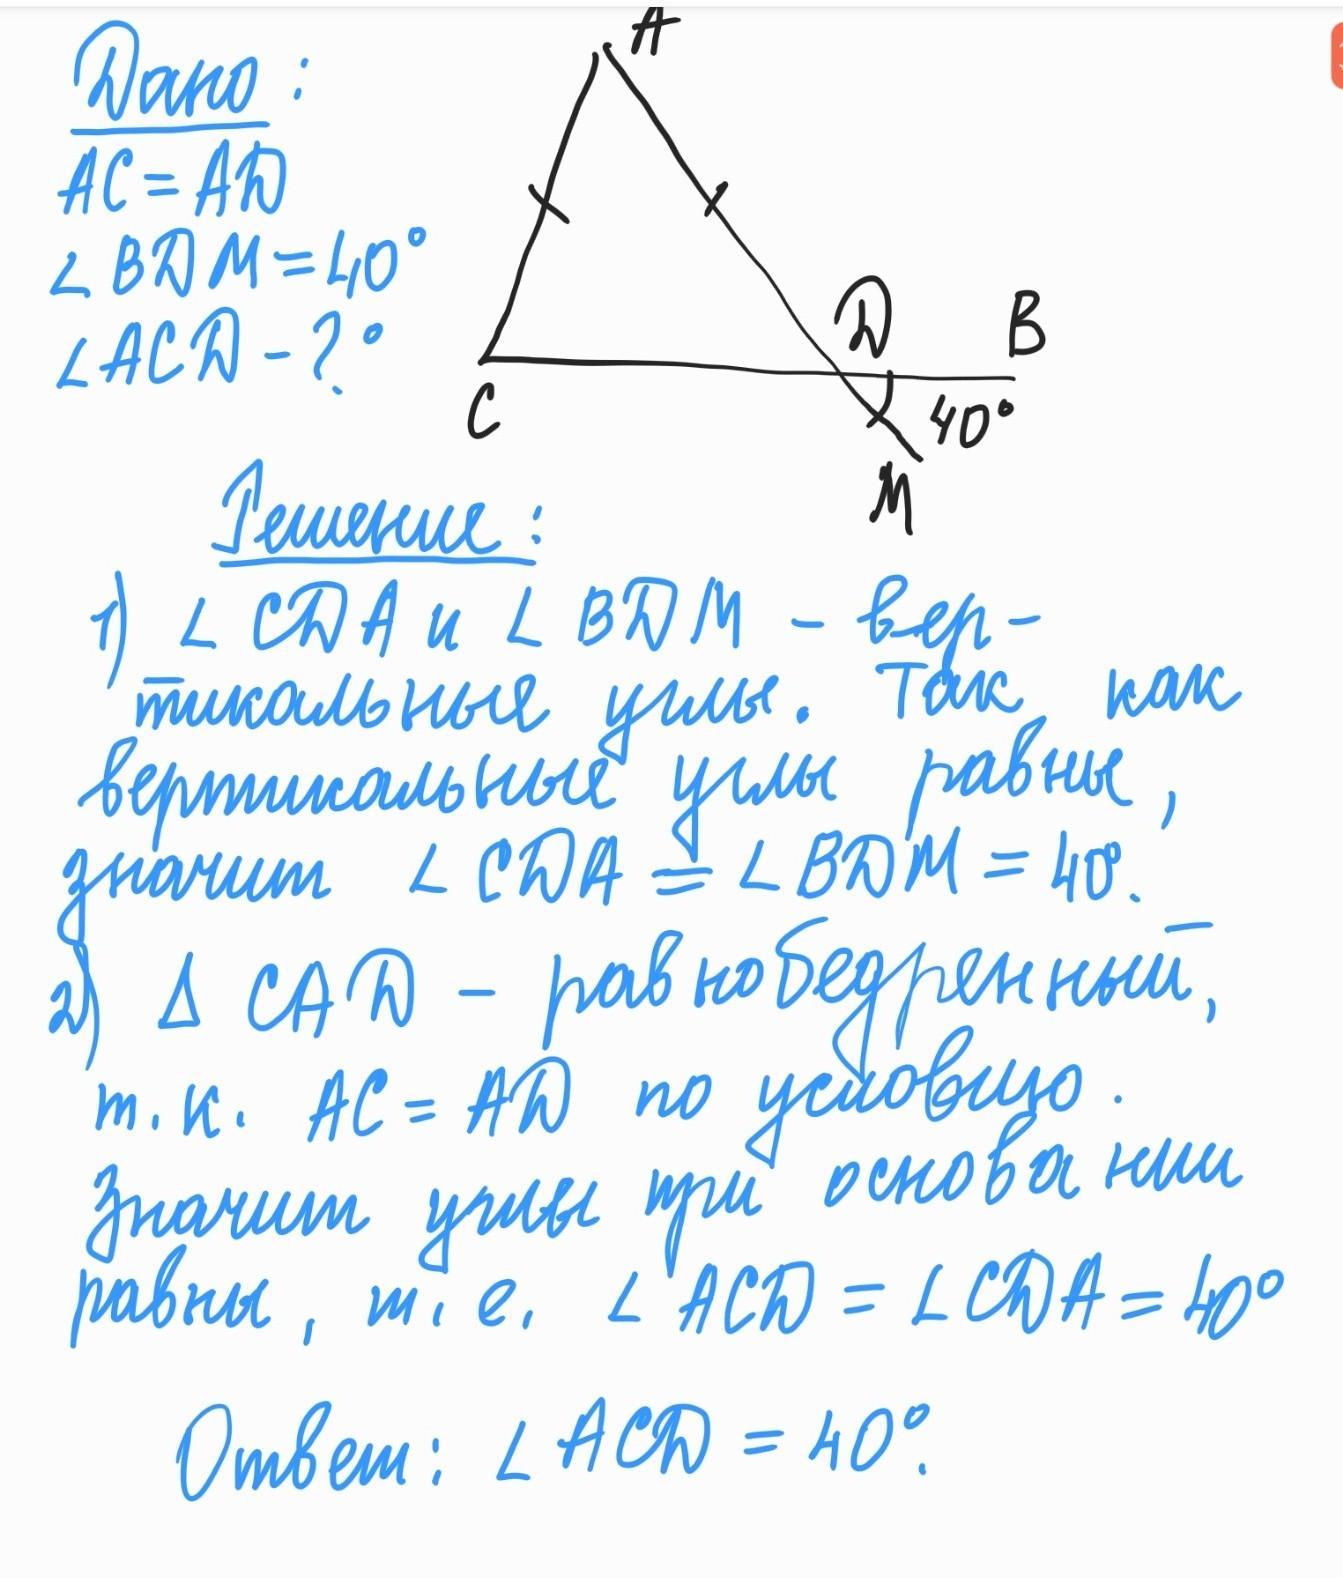 Дано:
AC = AD
∠ BDM = 40°
∠ ACD - ? °
A
D
B
C
40°
M
Решение:
1) ∠ CDA и ∠ BDM - вер-
тикальные углы. Так как
вертикальные углы равны,
значит ∠ CDA = ∠ BDM = 40°.
2) Δ CAD - равнобедренный,
т.к. AC = AD по условию.
Значит углы при основании
равны, т.е. ∠ ACD = ∠ CDA = 40°
Ответ: ∠ ACD = 40°.